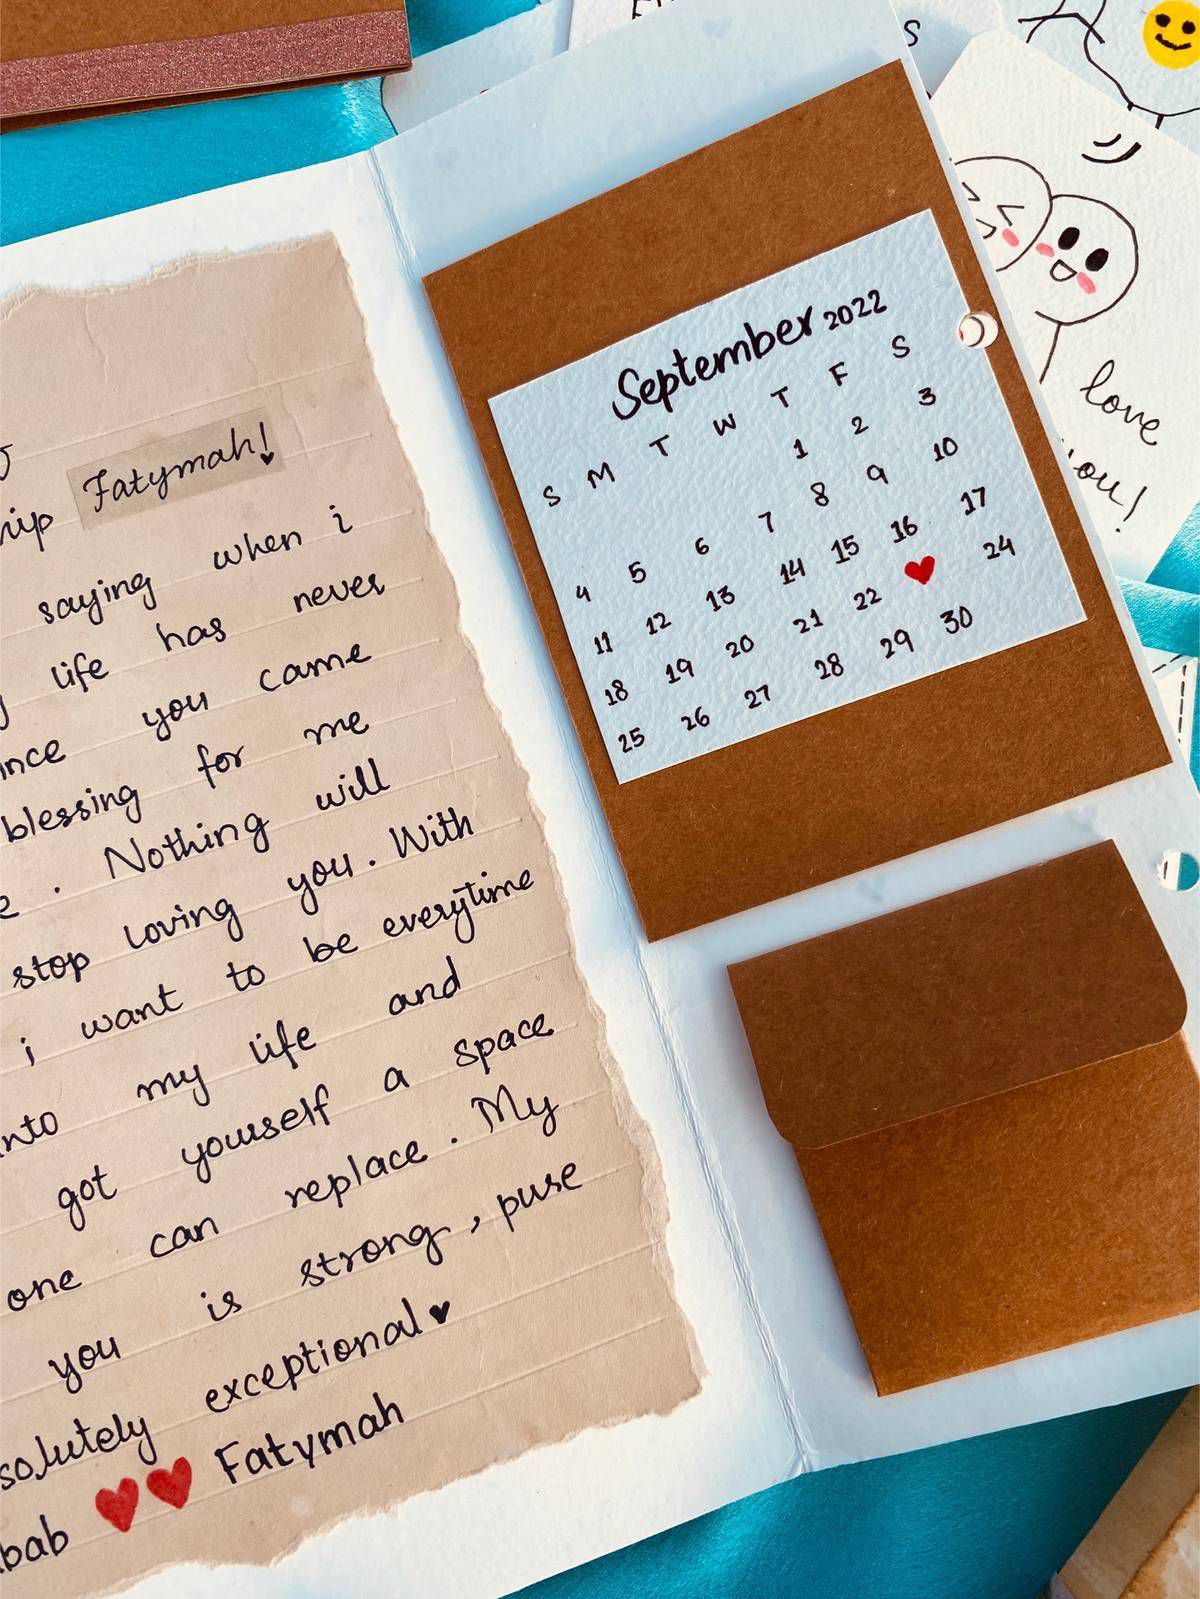 Fatymah!
saying when i
life has never
you came
blessing for me
. Nothing will
stop loving you. With
i want to be everytime
my life and
got yourself a space
one can replace. My
you is strong, pure
exceptional
Fatymah
September 2022
S M T W T F S
1 2 3
4 5 6 7 8 9 10
11 12 13 14 15 16 17
18 19 20 21 22 24
25 26 27 28 29 30
love
you!